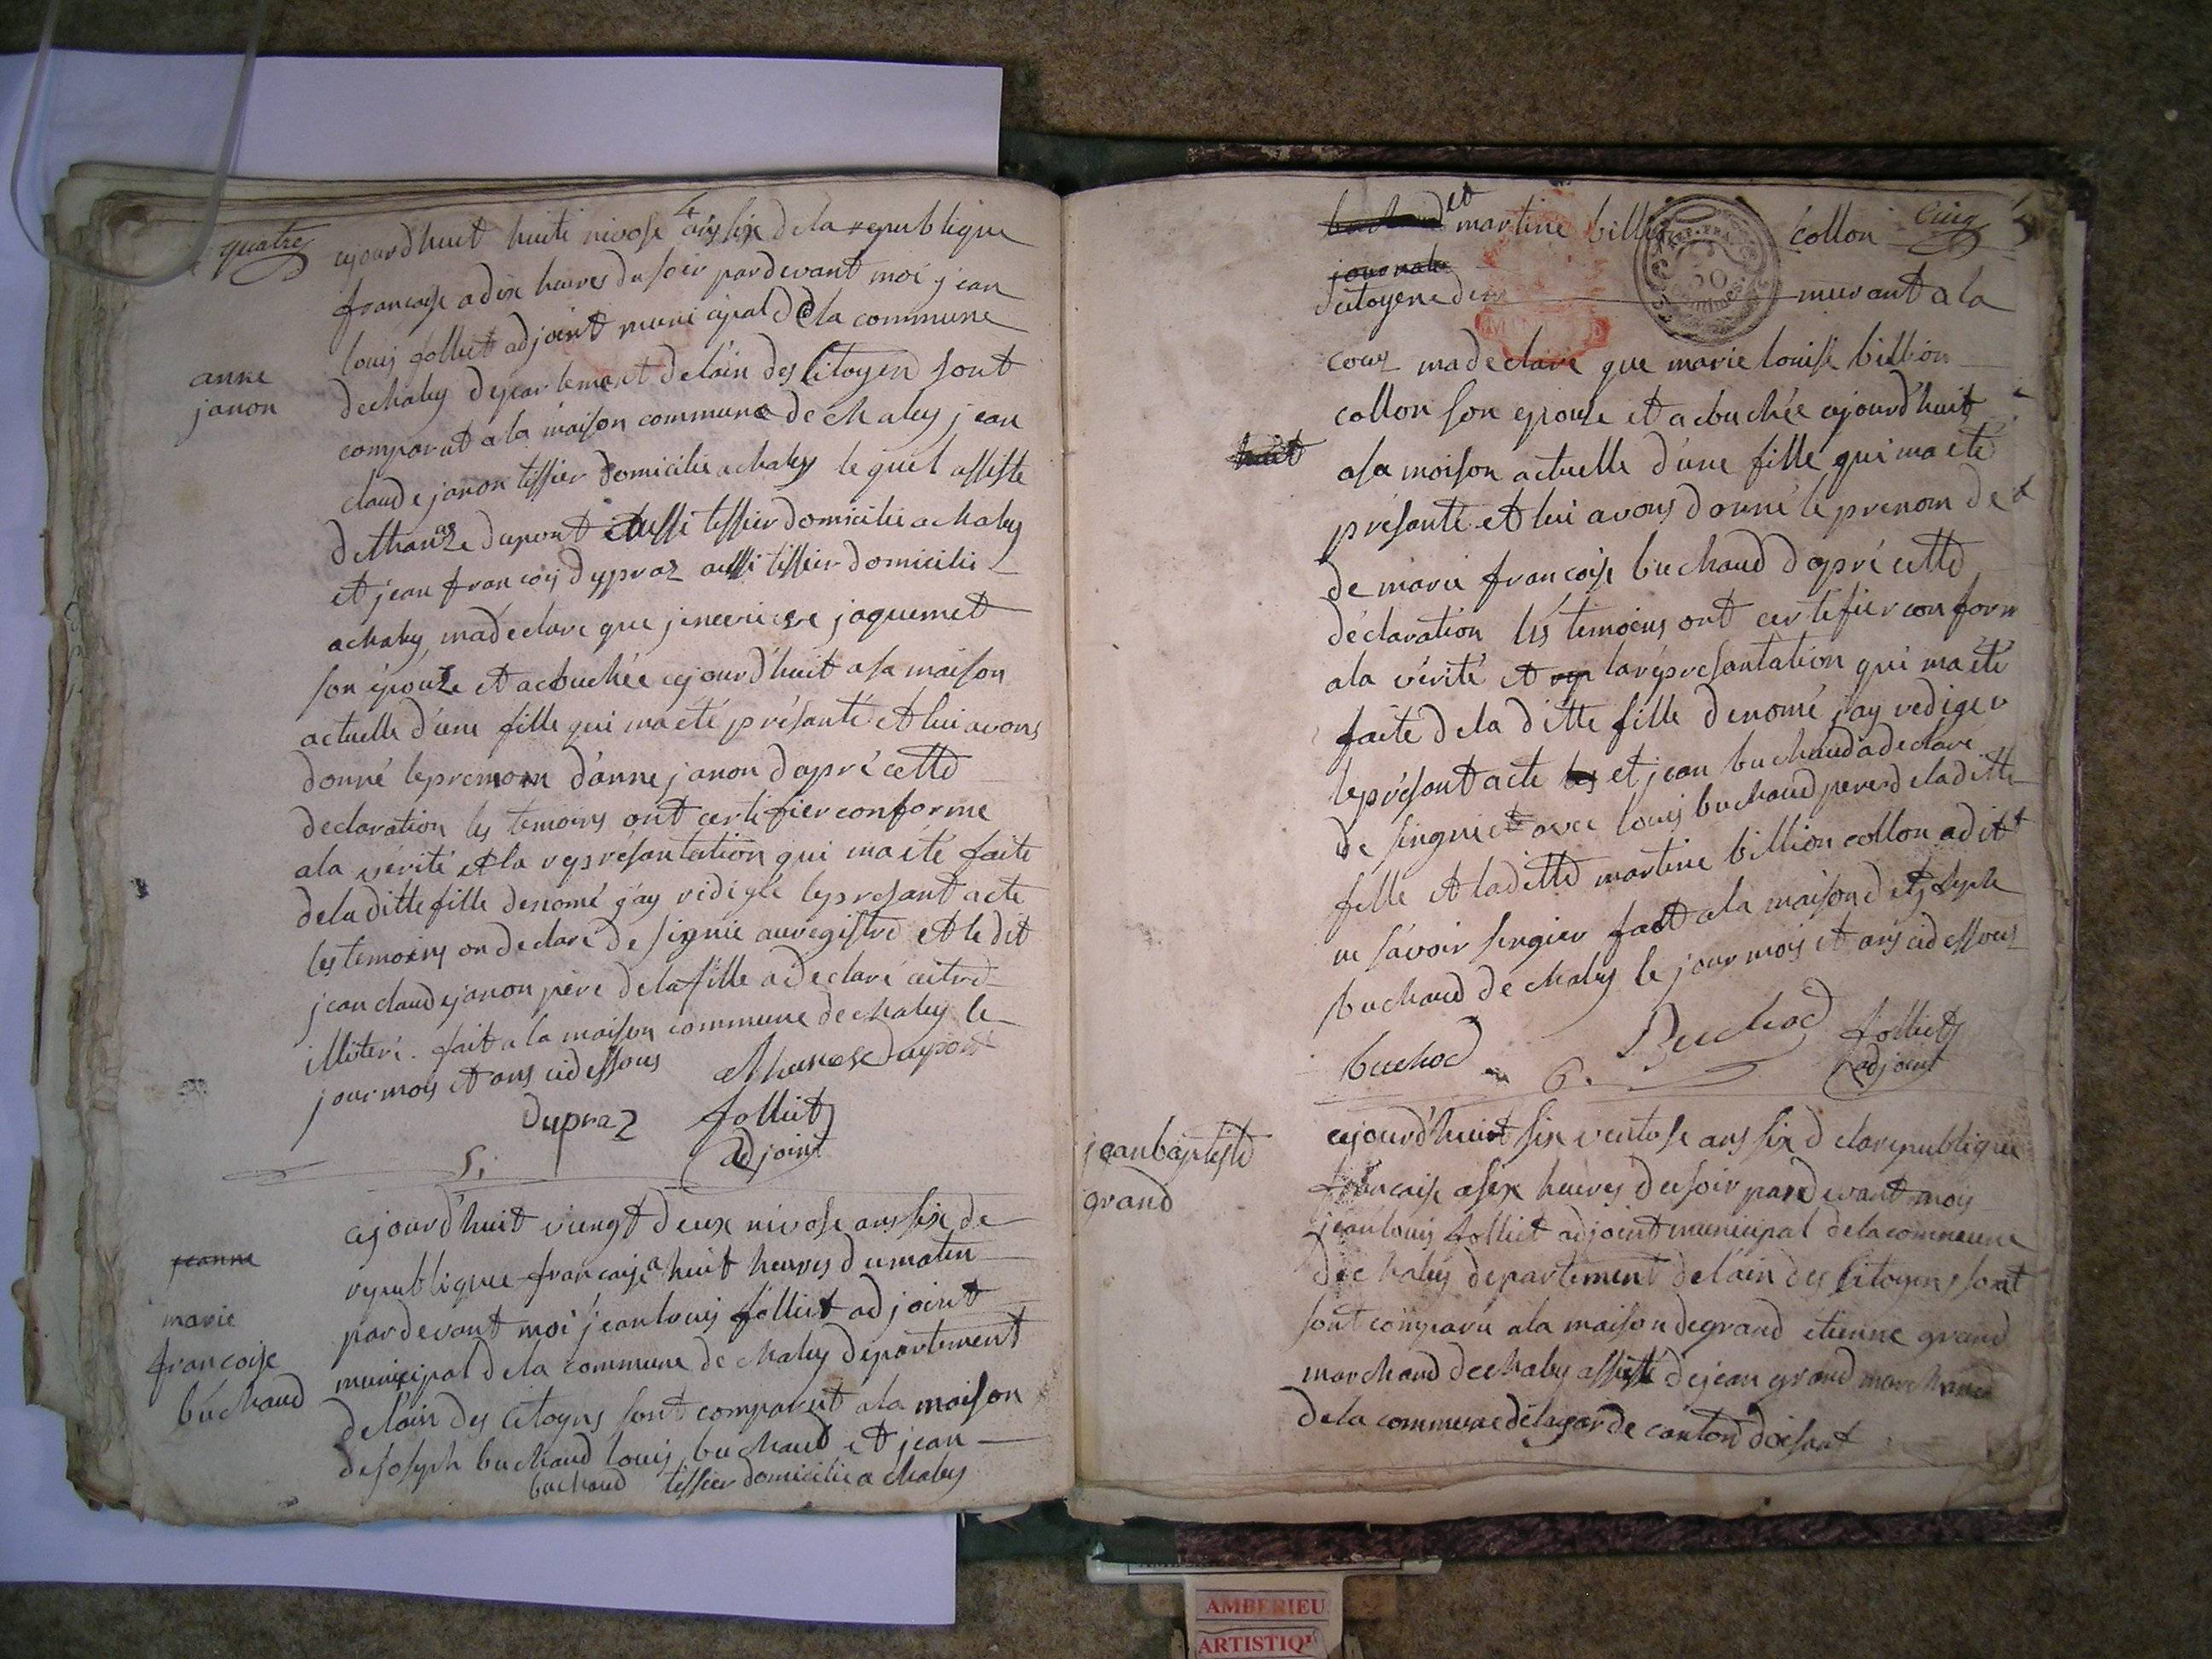 quatre
4
ajourdhuit huiti nivose ans six de la republique
francaise a dix heures du soir pardevant moi jean
louis folliet adjoint municipal de la commune
anne
janon
de chaley departement de lain des Citoyen sont
comparut a la maison commune de chaley jean
claude janon tissier domicilie a chaley le quel assiste
dethanaze dupont aussi tissier domicilie a chaley
et jean francois dupraz aussi tissier domicilie
a chaley, ma declare que jaquemet
son épouze et acouchée ajourd'huit a sa maison
actuelle d'une fille qui ma eté présanté et lui avons
donné le prenom d'anne janon dapré cette
declaration les temoins ont certifier conforme
a la vérité et la représantation qui ma eté faite
de la ditte fille denomé j'ay redigée le présant acte
les temoins on declaré de signié au registre et le dit
jean claude janon père de la fille a declaré aitre
illiteré. fait a la maison commune de chaley le
jour mois et ans cidessous
athanase dupont
dupraz
folliet
adjoint
5.
ajourd'huit viengt deux nivose ans six de
republique francaise a huit heures du matin
par devant moi jean louis folliet adjoint
jeanne
marie
francoise
buchaud
municipal de la commune de chaley departement
de lain des Citoyns sont comparut a la maison
de joseph buchaud louis buchaud et jean
buchaud tissier domicilie a chaley
et martine billion collon
Cinq
citoyene demeurant a la
cour ma declaré que marie louise billion
collon son epouse et acouchée ajourd'huit
huit
a sa maison actuelle d'une fille qui ma eté
présanté et lui avons donné le prenom de
de marie francoise buchaud dapré cette
déclaration lés temoins ont certifier conform
a la vérité et la représantation qui ma été
faite de la ditte fille denomé j'ay rediger
le présant acte et jean buchaud a declaré
de singnié avec louis buchaud pere de la ditte
fille et la ditte martine billion collon a dit
ne savoir singier fait a la maison de joseph
buchaud de chaley le jour mois et ans cidessous
buchod
Buchod
folliet
adjoint
6.
jean baptiste
grand
ajourd'huit six ventose ans six de la republique
francaise a six heures du soir pardevant moi
jean louis folliet adjoint municipal de la commune
de chaley departement de lain des Citoyens sont
sont comparu a la maison de grand etienne grand
marchand de chaley assisté de jean grand marchand
de la commune de lagarde canton doisant
50
AMBERIEU
ARTISTIQ